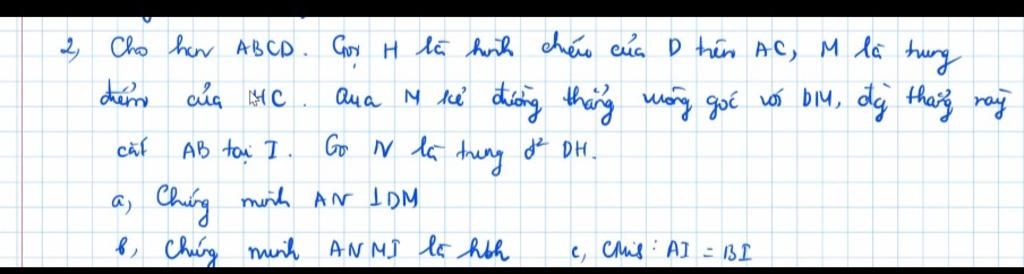 2, Cho hcn ABCD. Gọi H là hình chiếu của D trên AC, M là trung
điểm của HC. Qua M kẻ đường thẳng vuông góc với DM, đg thẳng này
cắt AB tại I. Gọi N là trung đ² DH.
a, Chứng minh AN ⊥ DM
b, Chứng minh ANMI là hbh c, CMR: AI = BI